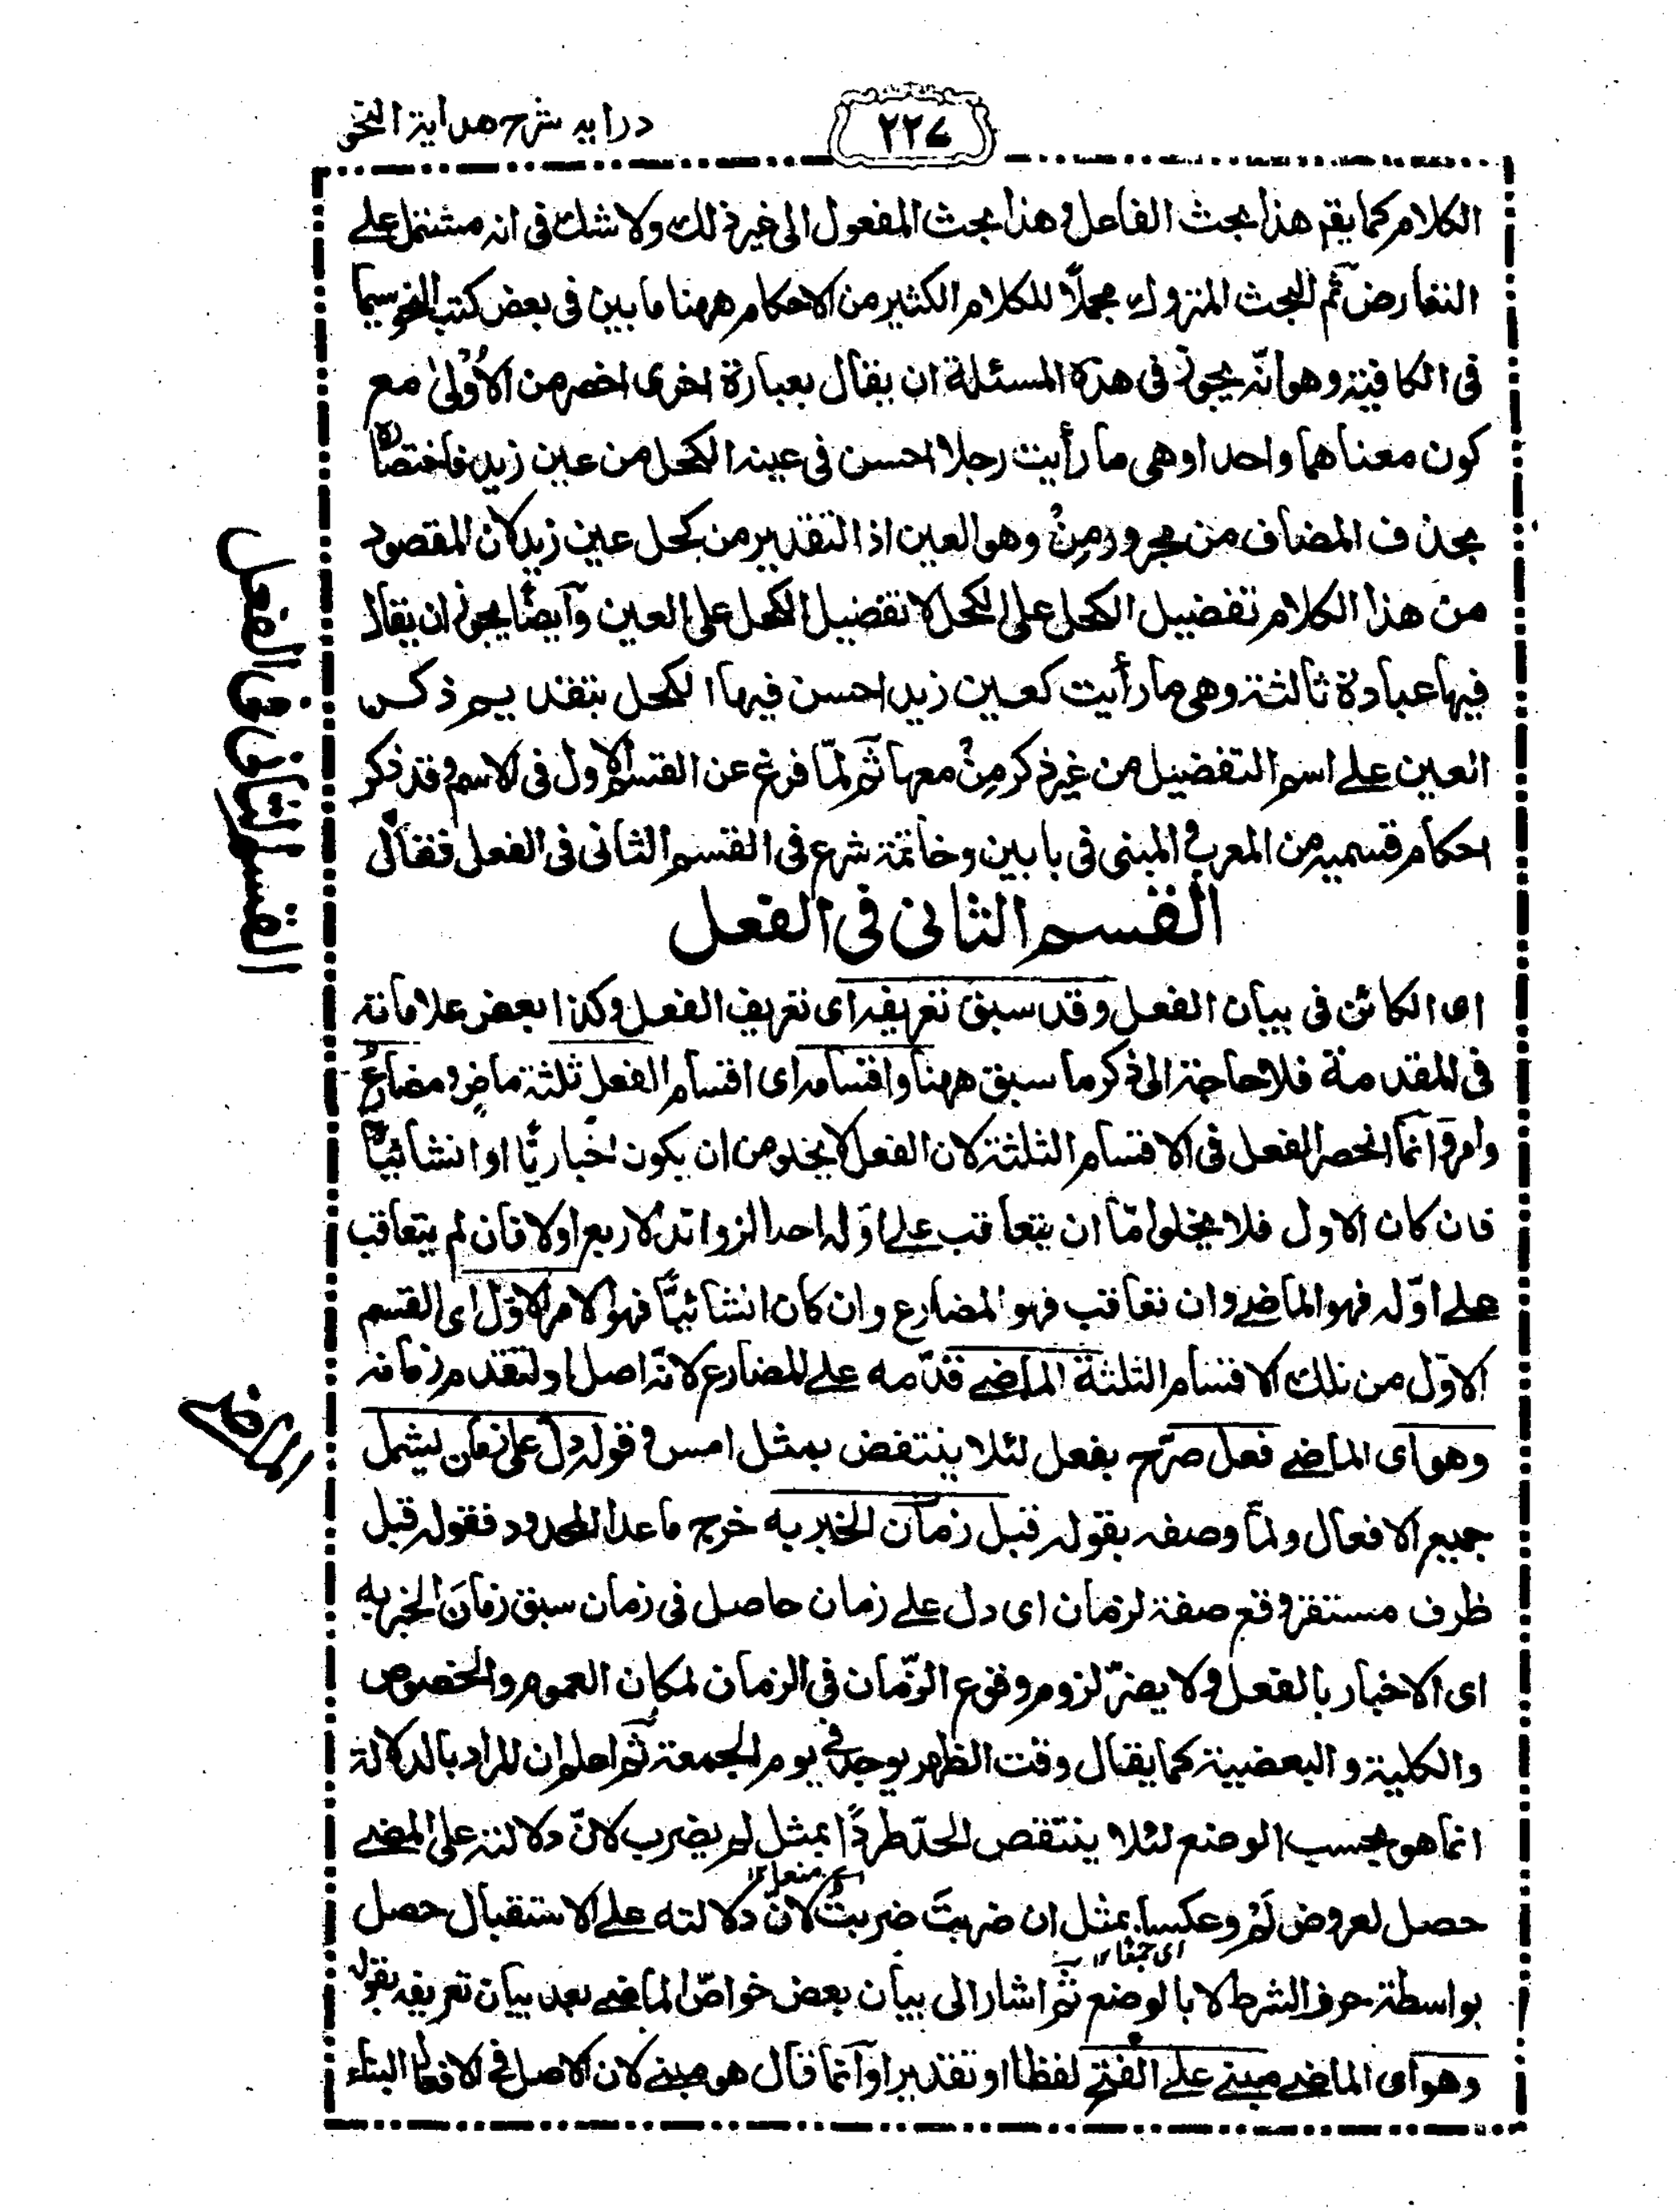 درايه شرح هداية النحو
٢٢٧
الكلام كما يقم هذا بحث الفاعل و هذا بحث المفعول الى غير ذلك ولا شك فى انه مشتمل على
التعارض ثم البحث المنزول مجملاً للكلام الكثير من الاحكام ههنا ما بين فى بعض كتب النحو سيما
فى الكافية وهو انّه يجوز فى هذه المسئلة ان يقال بعبارة اخرى اخصر من الأولىٰ مع
كون معناهما واحدا وهى ما رأيت رجلا احسن فى عينه الكحل من عين زيد فاختصاره
بحذف المضاف من مجرور مِنْ وهو العين اذ التقدير من كحل عين زيد لان المقصود
من هذا الكلام تفضيل الكحل على الكحل لا تفضيل الكحل على العين وآيضًا يجوز ان يقال
فيها عبارة ثالثة وهى ما رأيت كعين زيد احسن فيها الكحل بتقديم ذكر
العين على اسم التفضيل من غير ذكر مِنْ معها ثم لمّا فرغ عن القسم الاول فى الاسم و قد ذكر
احكام قسميه من المعرب و المبنى فى بابين وخاتمة شرع فى القسم الثانى فى الفعل فقال
القسم الثانى فى الفعل
اى الكائن فى بيان الفعل وقد سبق تعريفه اى تعريف الفعل وكذا بعض علاماته
فى المقدمة فلا حاجة الى ذكر ما سبق ههنا واقسامه اى اقسام الفعل ثلثة ماضٍ و مضارعٌ
وامرٌ وانّما انحصر الفعل فى الاقسام الثلثة لان الفعل لا يخلو من ان يكون اخباريًّا او انشائيًّا
فان كان الاول فلا يخلو امّا ان يتعاقب على اوّله احد الزوائد الاربع اولا فان لم يتعاقب
على اوّله فهو الماضى وان تعاقب فهو المضارع وان كان انشائيًّا فهو الامر الاوّل اى القسم
الاوّل من تلك الاقسام الثلثة الماضى قدّمه على المضارع لانّه اصل او لتقدم زمانه
وهو اى الماضى فعل صرّح بفعل لئلا ينتقض بمثل امس و قوله دلّ على زمان ليشمل
جميع الافعال ولمّا وصفه بقوله قبل زمان الخبر به خرج ما عدا المحدود فقوله قبل
ظرف مستقر وقع صفة لزمان اى دل على زمان حاصل فى زمان سبق زمانَ الخبر به
اى الاخبار بالفعل و لا يضرّ لزوم وقوع الزّمان فى الزمان لمكان العموم والخصوص
والكلية و البعضية كما يقال وقت الظهر يوجد فى يوم الجمعة ثم اعلم ان المراد بالدلالة
انما هو بحسب الوضع لئلا ينتقض الحدّ طردًا بمثل لم يضرب لانّ دلالته على المضى
حصل لعروض لَمْ وعكسا بمثل ان ضربتَ ضربتُ لانّ دلالته على الاستقبال حصل
بواسطة حرف الشرط لا بالوضع ثم اشار الى بيان بعض خواصّ الماضى بعد بيان تعريفه بقوله
وهو اى الماضى مبنى على الفتح لفظا او تقديرا وآنّما قال هو مبنى لان الاصل فى الافعال البناء
القسم الثانى فى الفعل
الماضى